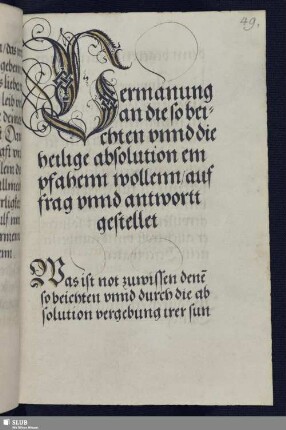 49.
Vermanung
an die so bei-
chten vnnd die
heilige absolution em
pfahenn wollenn/auf
frag vnnd antwortt
gestellet
Was ist not zuwissen denē
so beichten vnnd durch die ab
solution vergebung irer sun
SLUB